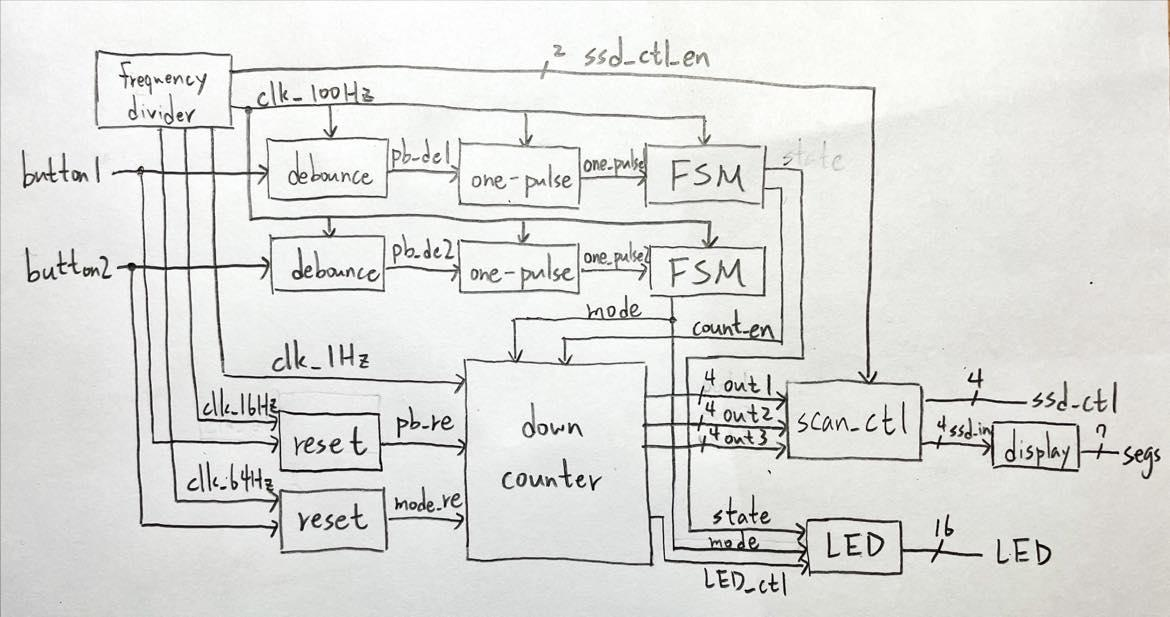 2 ssd_ctl_en
frequency
divider
clk_100Hz
state
button1
debounce
pb_de1
one-pulse
one_pulse
FSM
button2
debounce
pb_de2
one-pulse
one_pulse2
FSM
mode
count_en
clk_1Hz
clk_16Hz
reset
pb_re
clk_64Hz
reset
mode_re
down
counter
4 out1
4 out2
4 out3
scan_ctl
4
ssd_ctl
4 ssd_in
display
7
segs
state
mode
LED_ctl
LED
16
LED